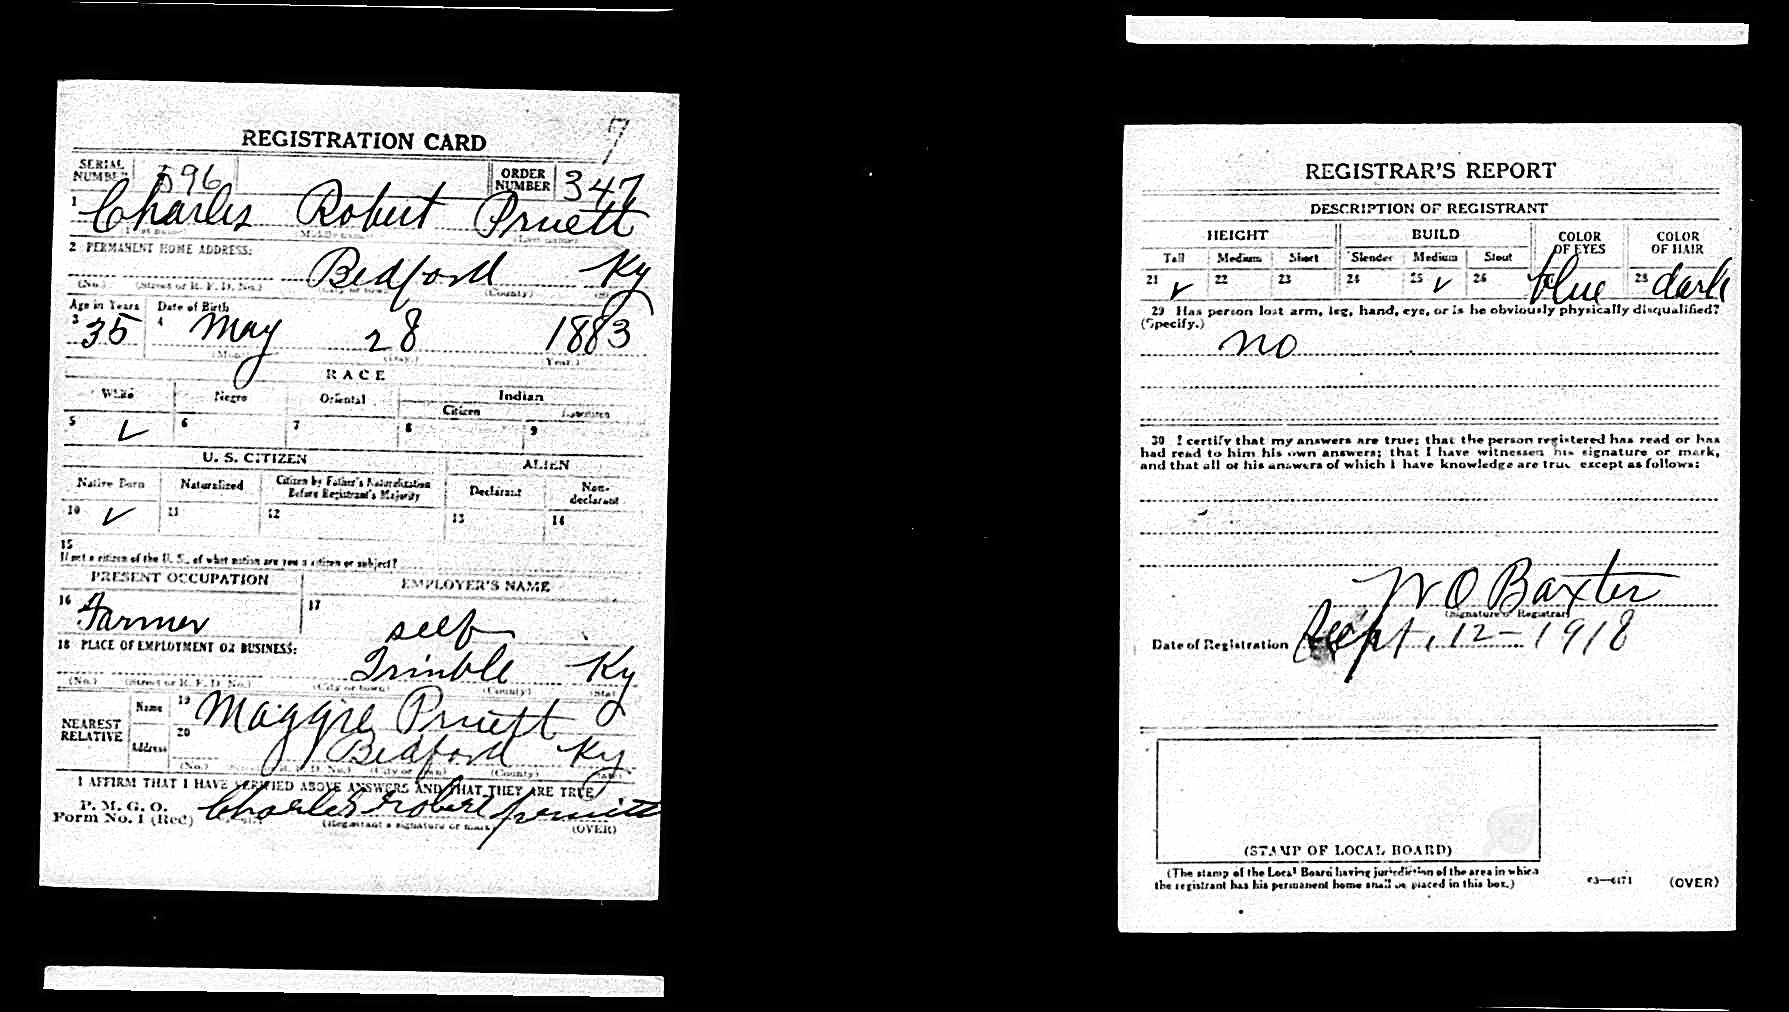 7
REGISTRATION CARD
SERIAL NUMBER 596 ORDER NUMBER 347
1 Charles Robert Pruett
(First name) (Middle name) (Last name)
2 PERMANENT HOME ADDRESS:
Bedford Ky
(No.) (Street or R. F. D. No.) (City or town) (County) (State)
Age in Years Date of Birth
3 35 4 May 28 1883
(Month.) (Day.) (Year.)
RACE
White Negro Oriental Indian
Citizen Noncitizen
5 ✓ 6 7 8 9
U. S. CITIZEN ALIEN
Native Born Naturalized Citizen by Father's Naturalization Before Registrant's Majority Declarant Non-declarant
10 ✓ 11 12 13 14
15
If not a citizen of the U. S., of what nation are you a citizen or subject?
PRESENT OCCUPATION EMPLOYER'S NAME
16 Farmer 17 self
18 PLACE OF EMPLOYMENT OR BUSINESS:
Trimble Ky
(No.) (Street or R. F. D. No.) (City or town) (County) (State)
NEAREST RELATIVE
Name 19 Maggie Pruett
Address 20 Bedford Ky
(No.) (Street or R. F. D. No.) (City or town) (County) (State)
I AFFIRM THAT I HAVE VERIFIED ABOVE ANSWERS AND THAT THEY ARE TRUE
P. M. G. O.
Form No. 1 (Red) Charles robert pruitt
(Registrant's signature or mark) (OVER)
REGISTRAR'S REPORT
DESCRIPTION OF REGISTRANT
HEIGHT BUILD COLOR OF EYES COLOR OF HAIR
Tall Medium Short Slender Medium Stout
21 ✓ 22 23 24 25 ✓ 26 blue 28 dark
29 Has person lost arm, leg, hand, eye, or is he obviously physically disqualified?
(Specify.)
no
30 I certify that my answers are true; that the person registered has read or has
had read to him his own answers; that I have witnessed his signature or mark,
and that all of his answers of which I have knowledge are true except as follows:
W O Baxter
(Signature of Registrar)
Date of Registration Sept. 12 - 1918
(STAMP OF LOCAL BOARD)
(The stamp of the Local Board having jurisdiction of the area in which
the registrant has his permanent home shall be placed in this box.)
03—6171 (OVER)